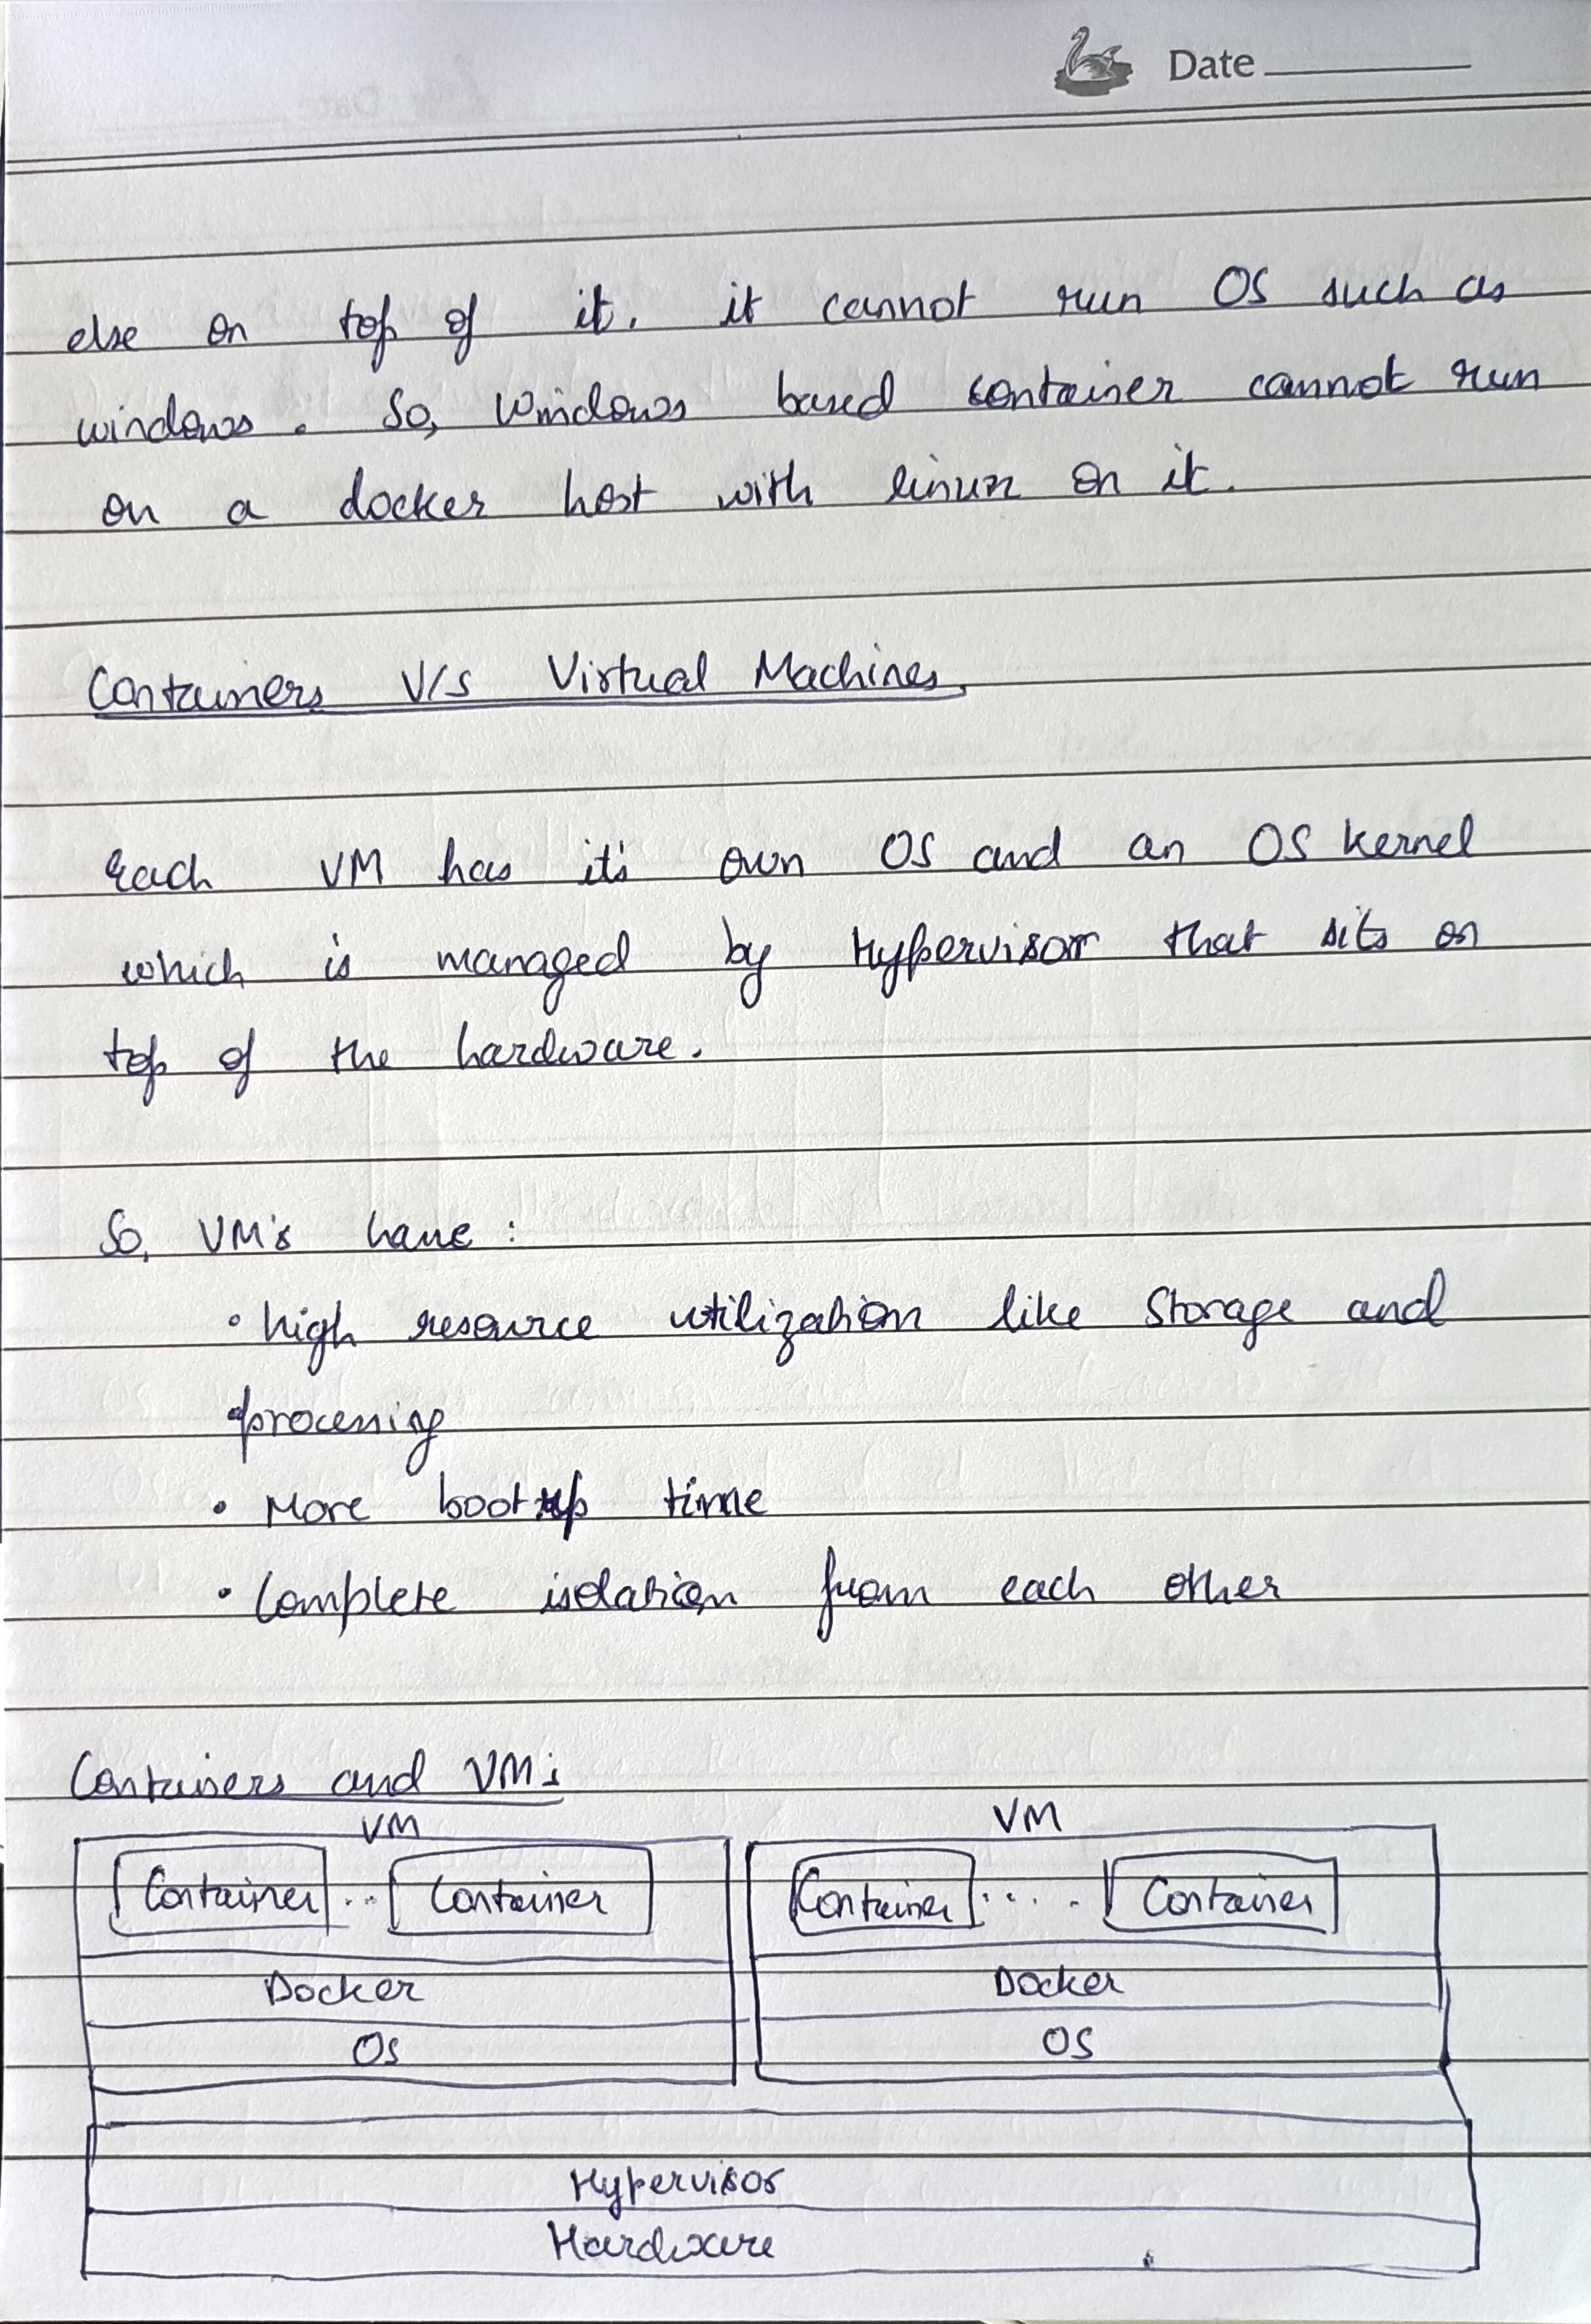 Date
else on top of it. it cannot run OS such as
windows. So, Windows based container cannot run
on a docker host with linux on it.
Containers V/s Virtual Machines
Each VM has it's own OS and an OS kernel
which is managed by Hypervisor that sits on
top of the hardware.
So, VM's have :
• high resource utilization like Storage and
processing
• More bootup time
• Complete isolation from each other
Containers and VMs
VM VM
Container .. Container Container ..... Container
Docker Docker
OS OS
Hypervisor
Hardware